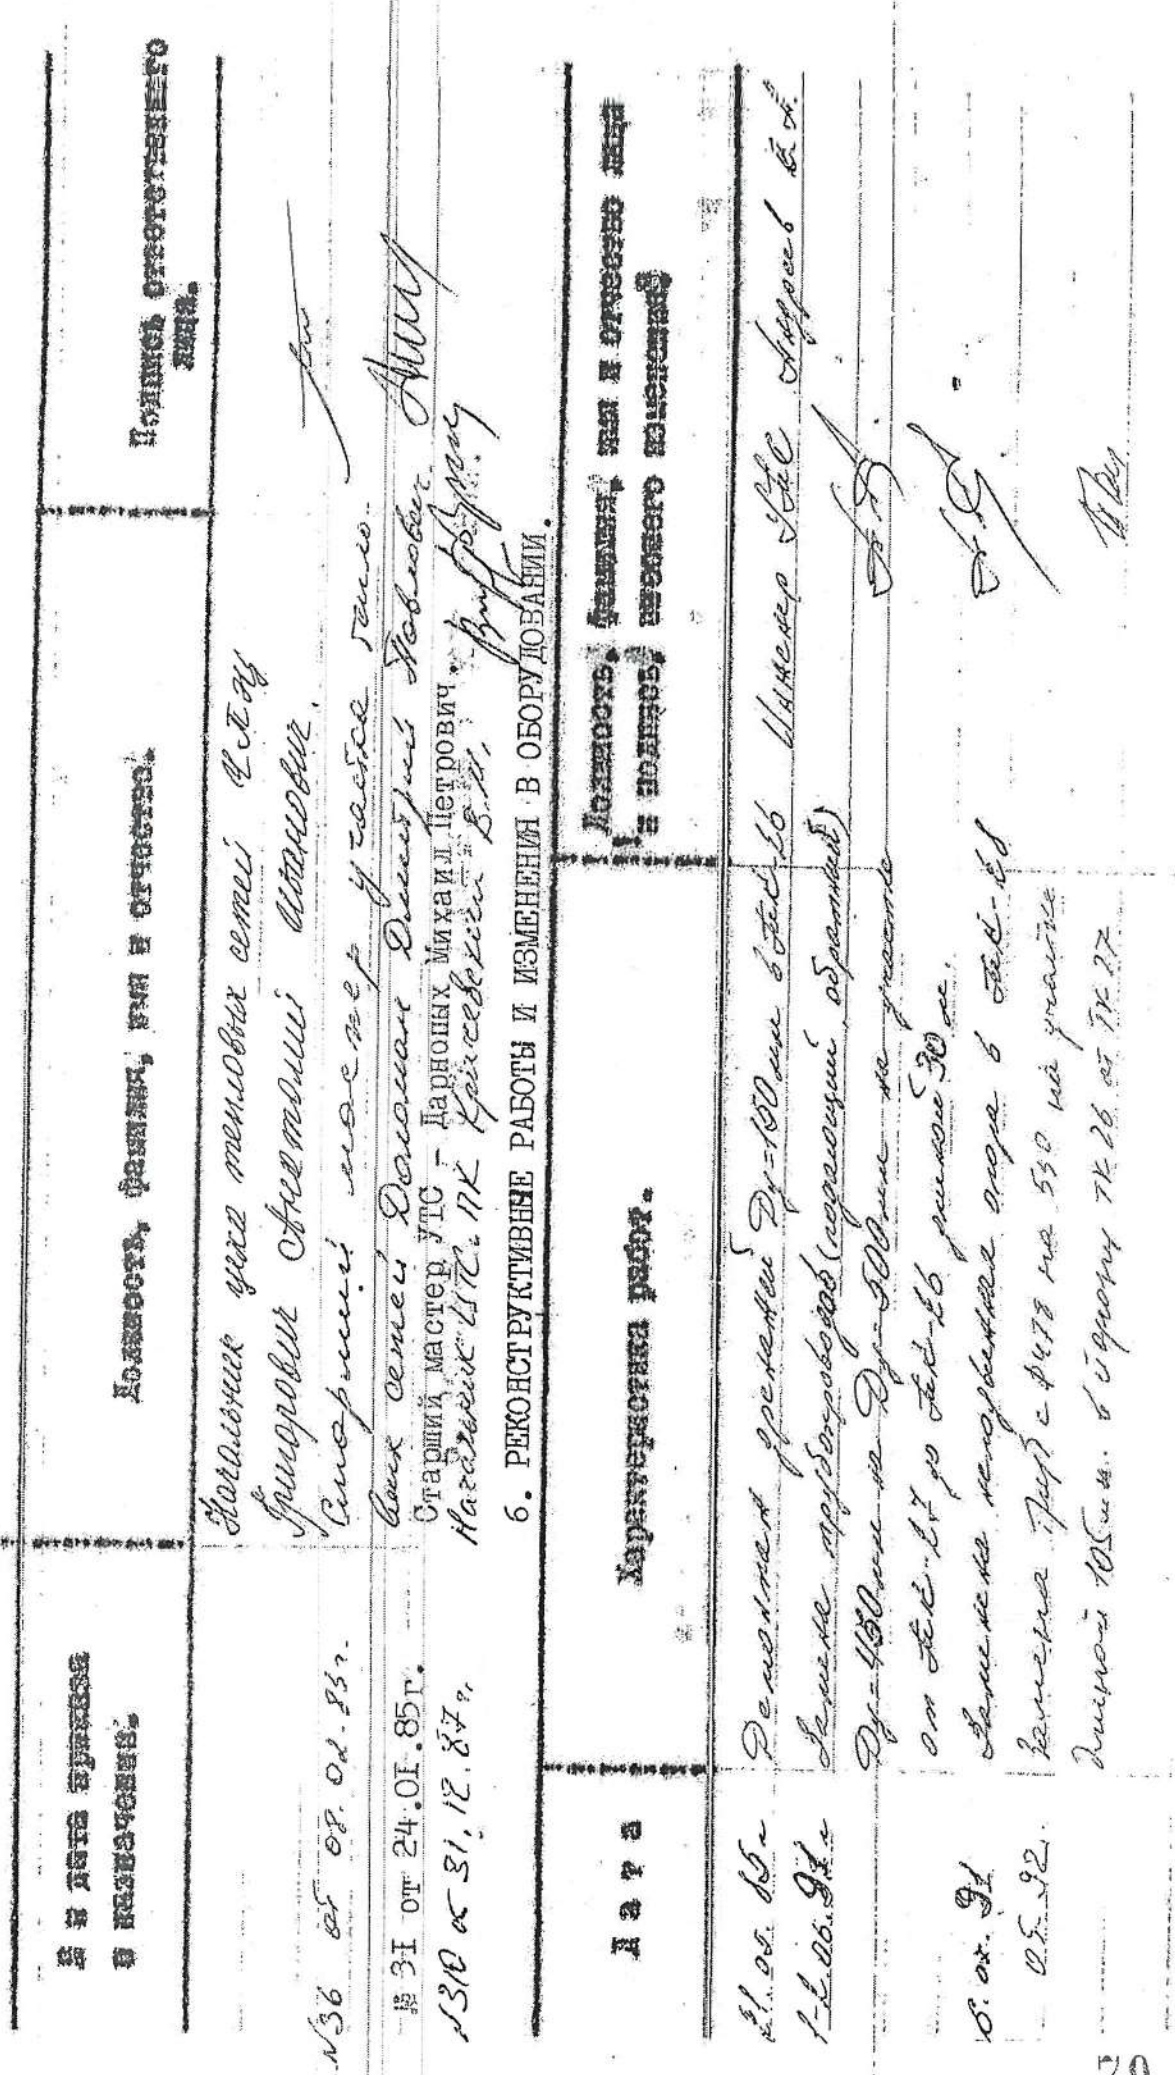 № и дата приказа
о назначении.
Должность, фамилия, имя и отчество.
Подпись ответственного
лица.
Начальник цеха тепловых сетей
Григорович Анатолий Иванович.
N36 от 08.02.83г.
Старший мастер участка тепло-
вых сетей Доломан Дмитрий Павлович
№ 3I от 24.0I.85г.
Старший мастер УТС - Дарнопых Михаил Петрович.
N310 от 31.12.87г.
Начальник
6. РЕКОНСТРУКТИВНЫЕ РАБОТЫ И ИЗМЕНЕНИЯ В ОБОРУДОВАНИИ.
Дата
Характеристика работ.
Должность, фамилия, имя и отчество лица
и подпись,
21.05.85г
Демонтаж дренажей Ду=150мм в ТК-26
Инженер Андреев
Замена трубопроводов (подающий обратный)
Ду-450мм на Ду-500мм на участке
от ТК-27 до ТК-26 длиной 30м.
Замена неподвижных опор в ТК-28
05.92.
Замена труб с ф478 на 530 на участке
длиной 105мм. в сторону ТК26 от ТК27
70